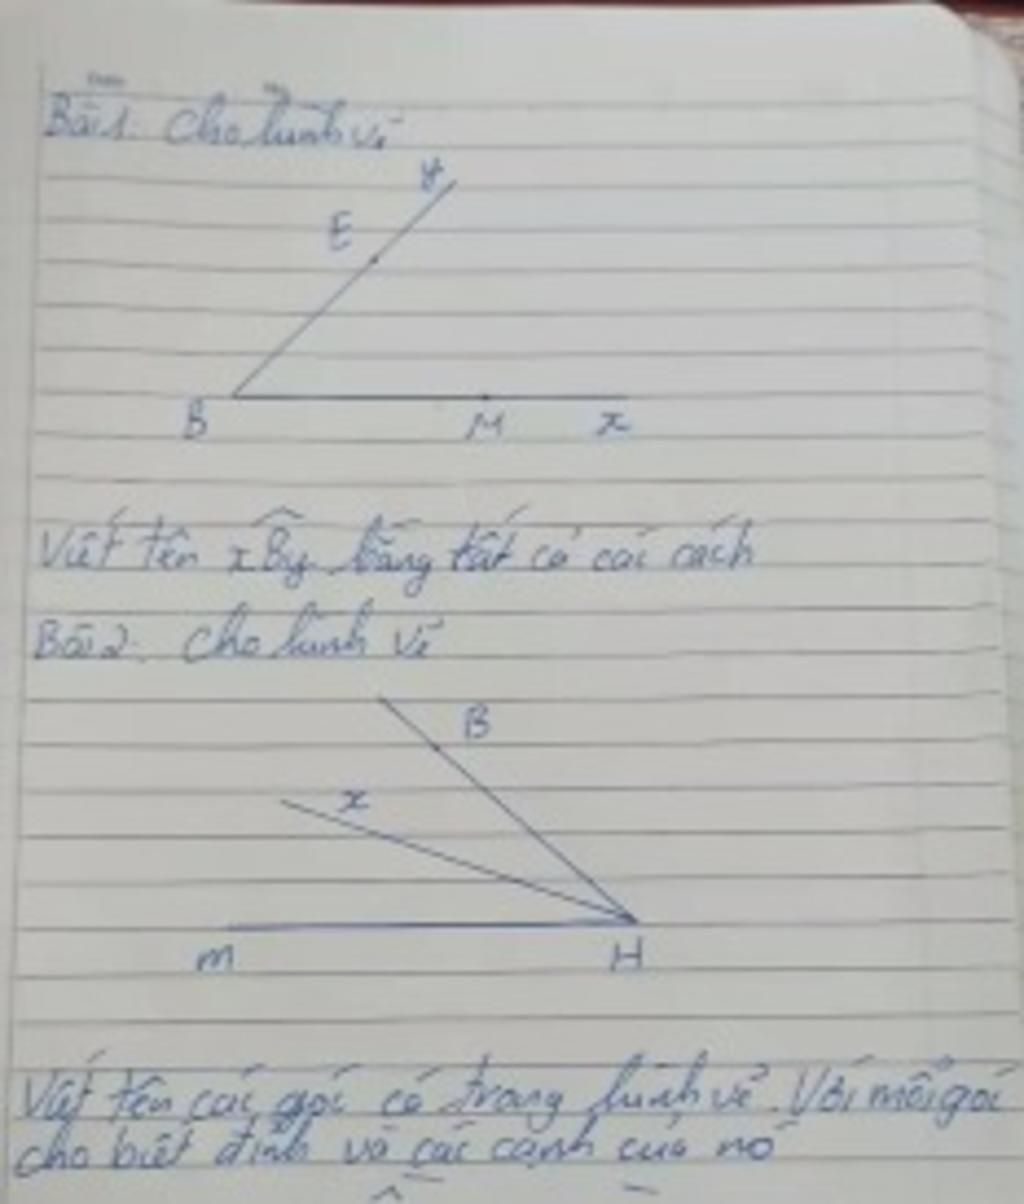 Bài 1. Cho hình vẽ
y
E
B M x
Viết tên xBy bằng tất cả các cách
Bài 2. Cho hình vẽ
B
x
m H
Viết tên các góc có trong hình vẽ. Với mỗi góc
cho biết đỉnh và các cạnh của nó